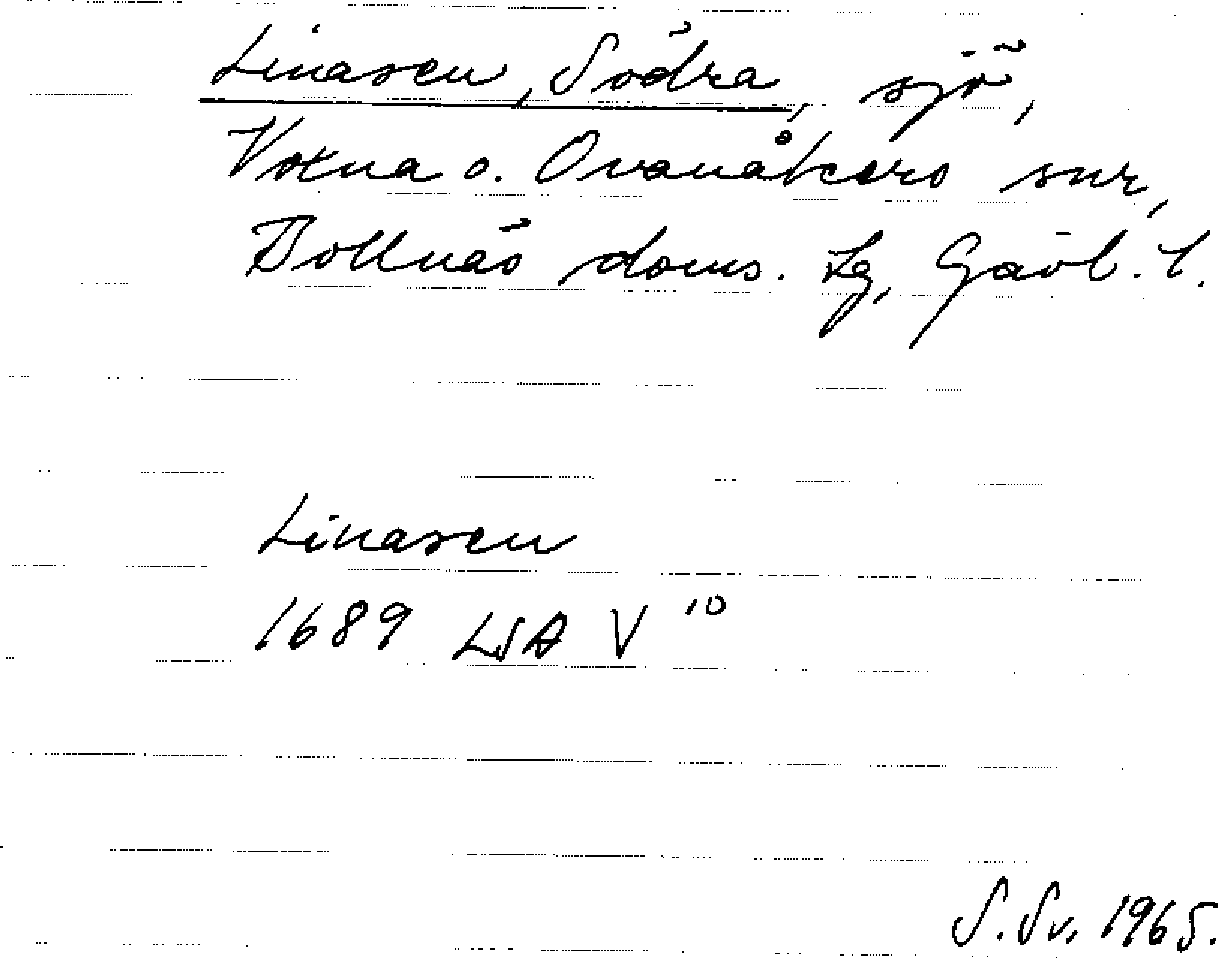 Linasen, Södra, sjö,
Voxna o. Ovanåkers snr,
Bollnäs doms. lg, Gävl. l.
Linasen
1689 LSA V 10
S. Sv. 1965.